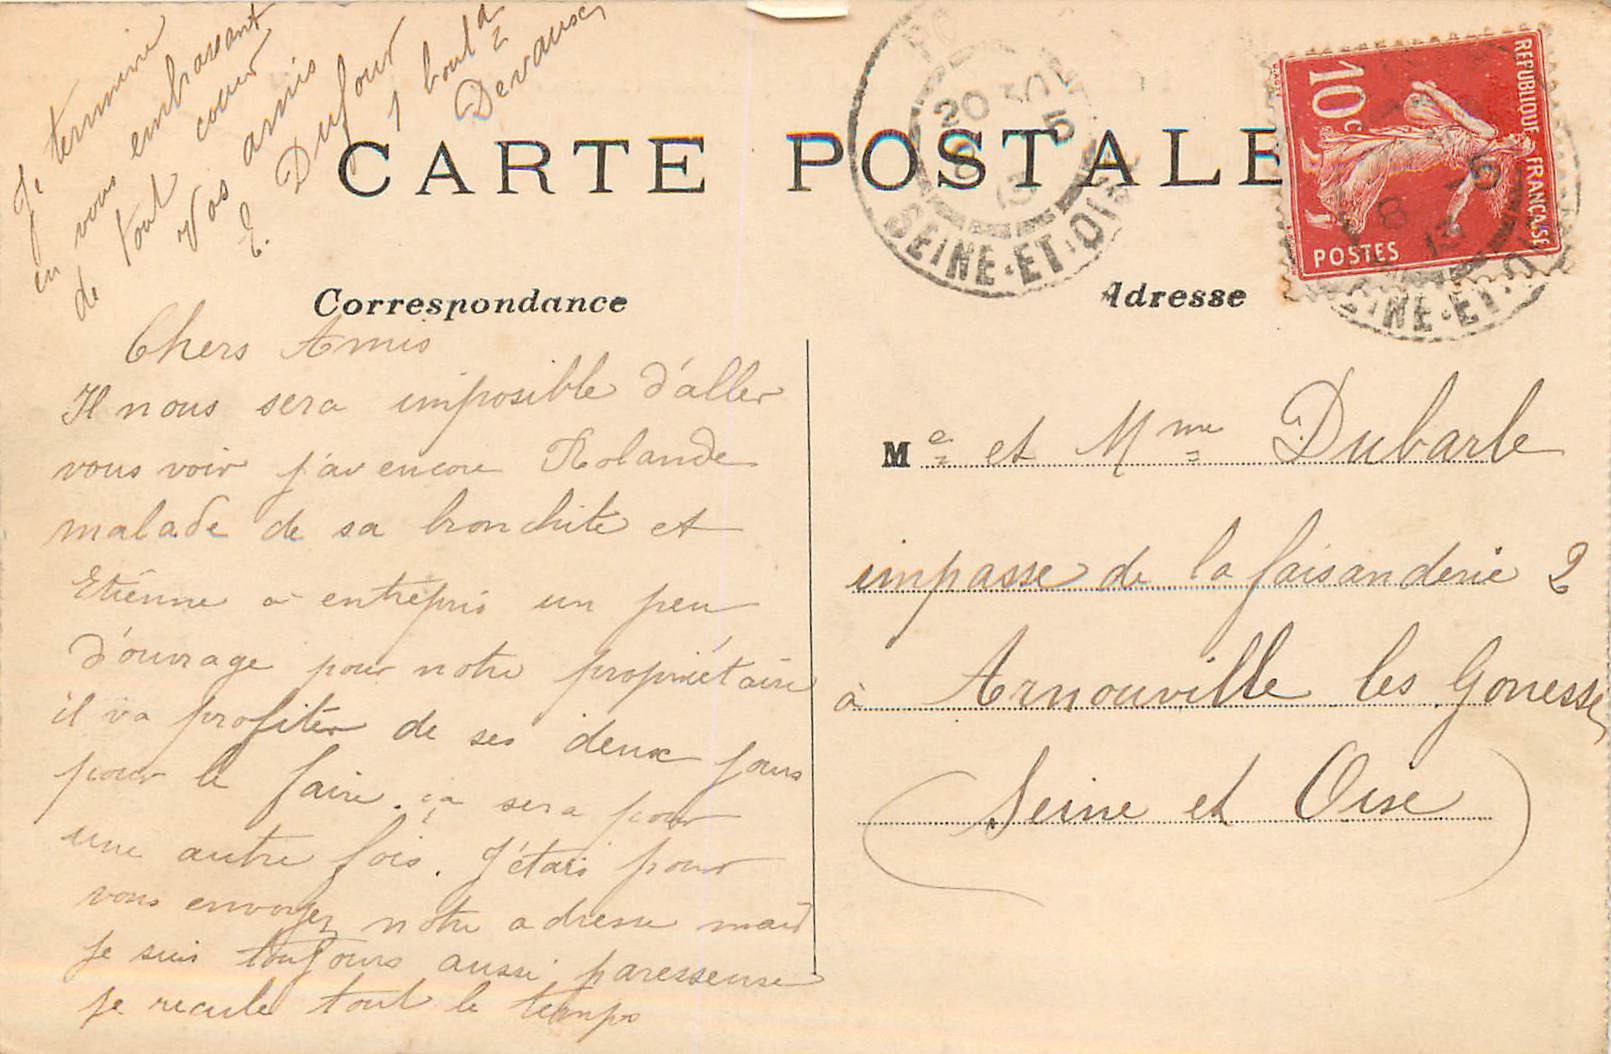 Je termine
en vous embrassant
de tout cœur
Vos amis
E. Dufour
1 bould
Devaux
CARTE POSTALE
20 30
5
8
13
SEINE-ET-OISE
10c
REPUBLIQUE FRANÇAISE
POSTES
8
13
SEINE-ET-OISE
Correspondance
Adresse
Chers Amis
Il nous sera imposible d'aller
vous voir j'ai encore Rolande
malade de sa bronchite et
Etiénne a entrépris un peu
d'ouvrage pour notre propriétaire
il va profiter de ses deux jours
pour le faire. ça sera pour
une autre fois. J'étais pour
vous envoyez notre adresse mais
je suis toujours aussi paresseuse
je recule tout le temps
Me et Mme Dubarle
impasse de la faisanderie 2
à Arnouville les Gonesse
(Seine et Oise)